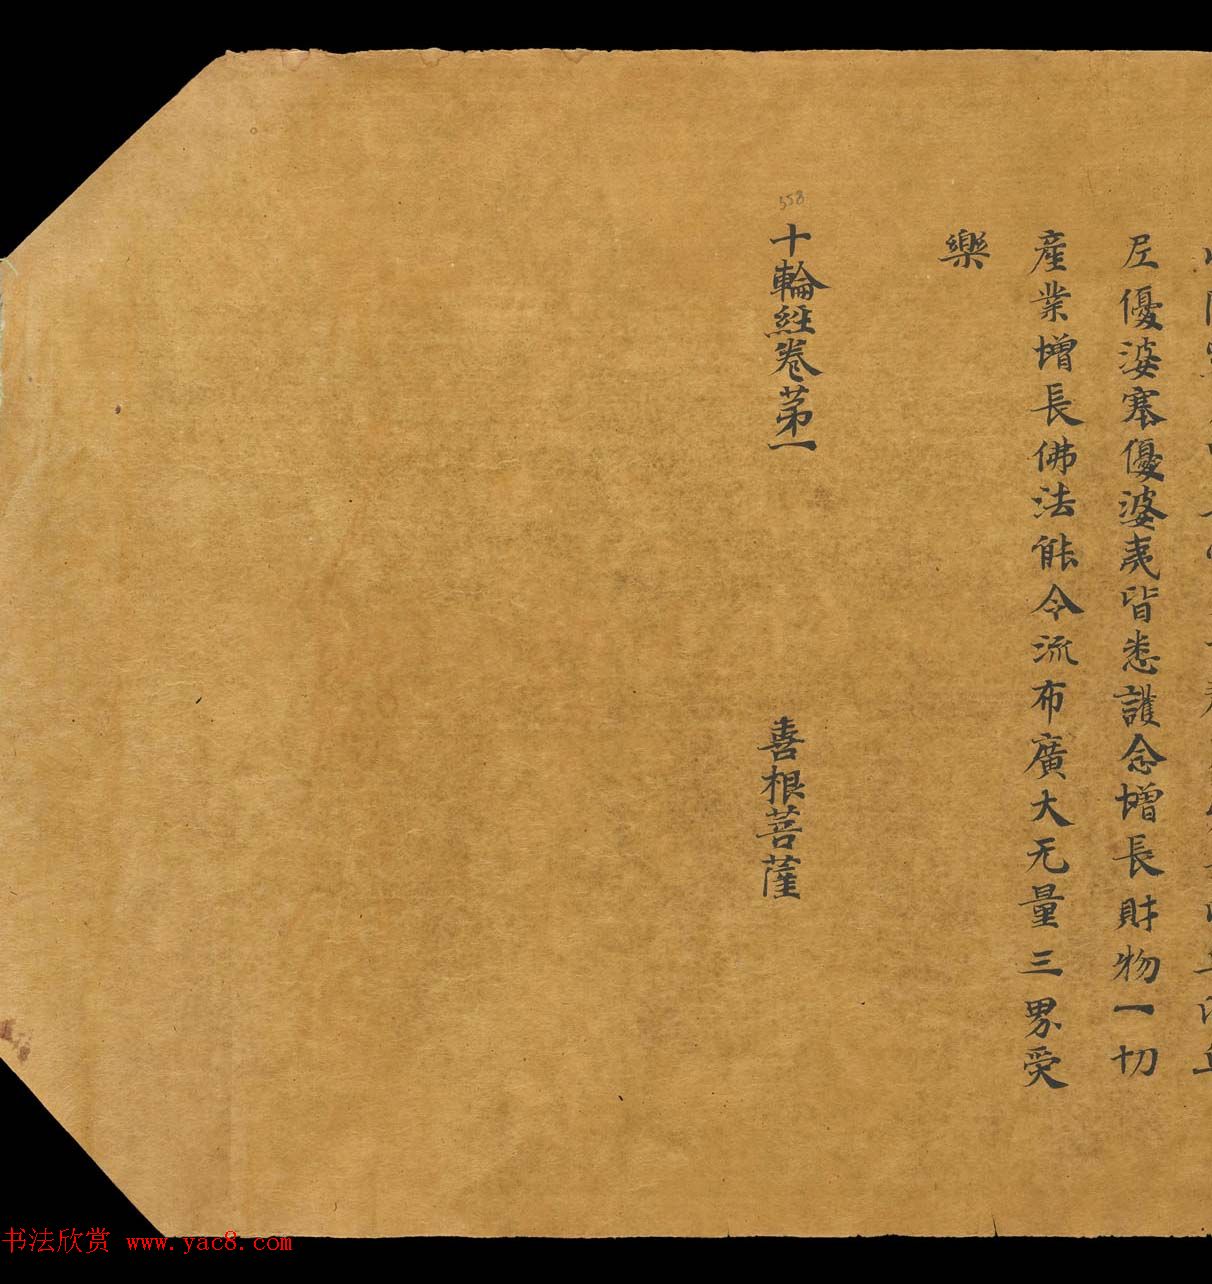 尼優婆塞優婆夷皆悉護念增長財物一切
產業增長佛法能令流布廣大无量三界受
樂
558
十輪經卷苐一
喜根菩薩
书法欣赏 www.yac8.com